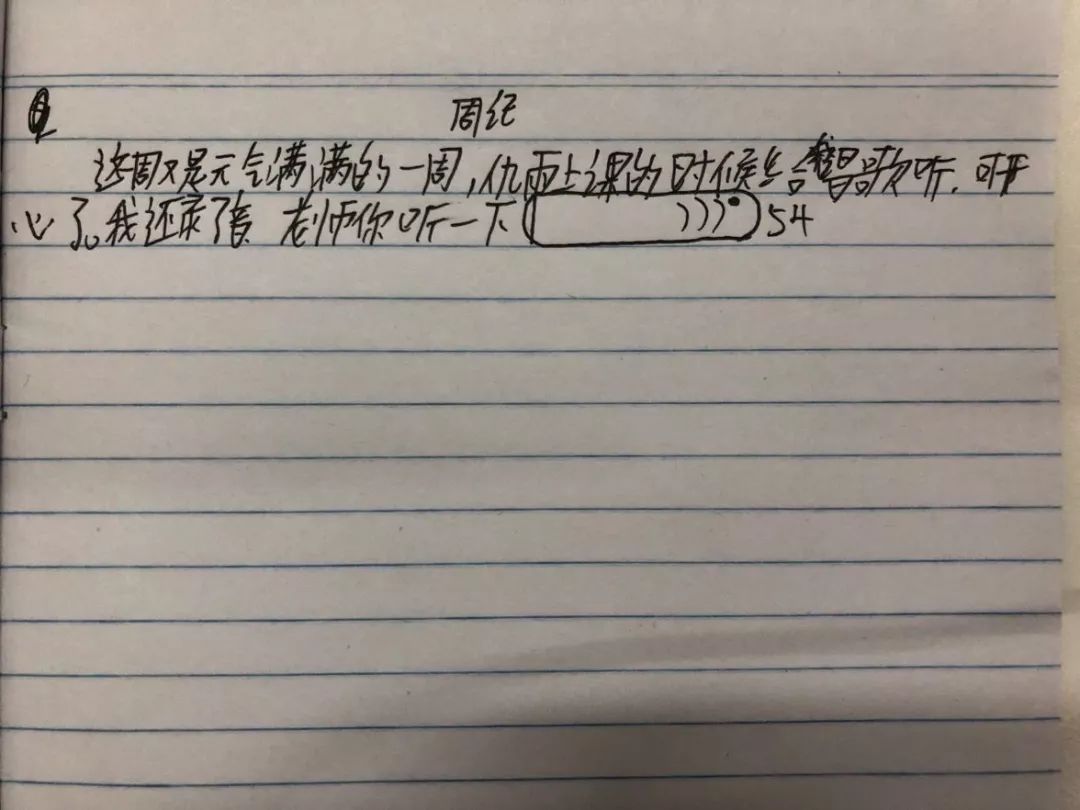 周纪
这周又是元气满满的一周,仇雨上课的时候给我唱歌听.可开
心了。我还录了音 老师你听一下 ))) 54